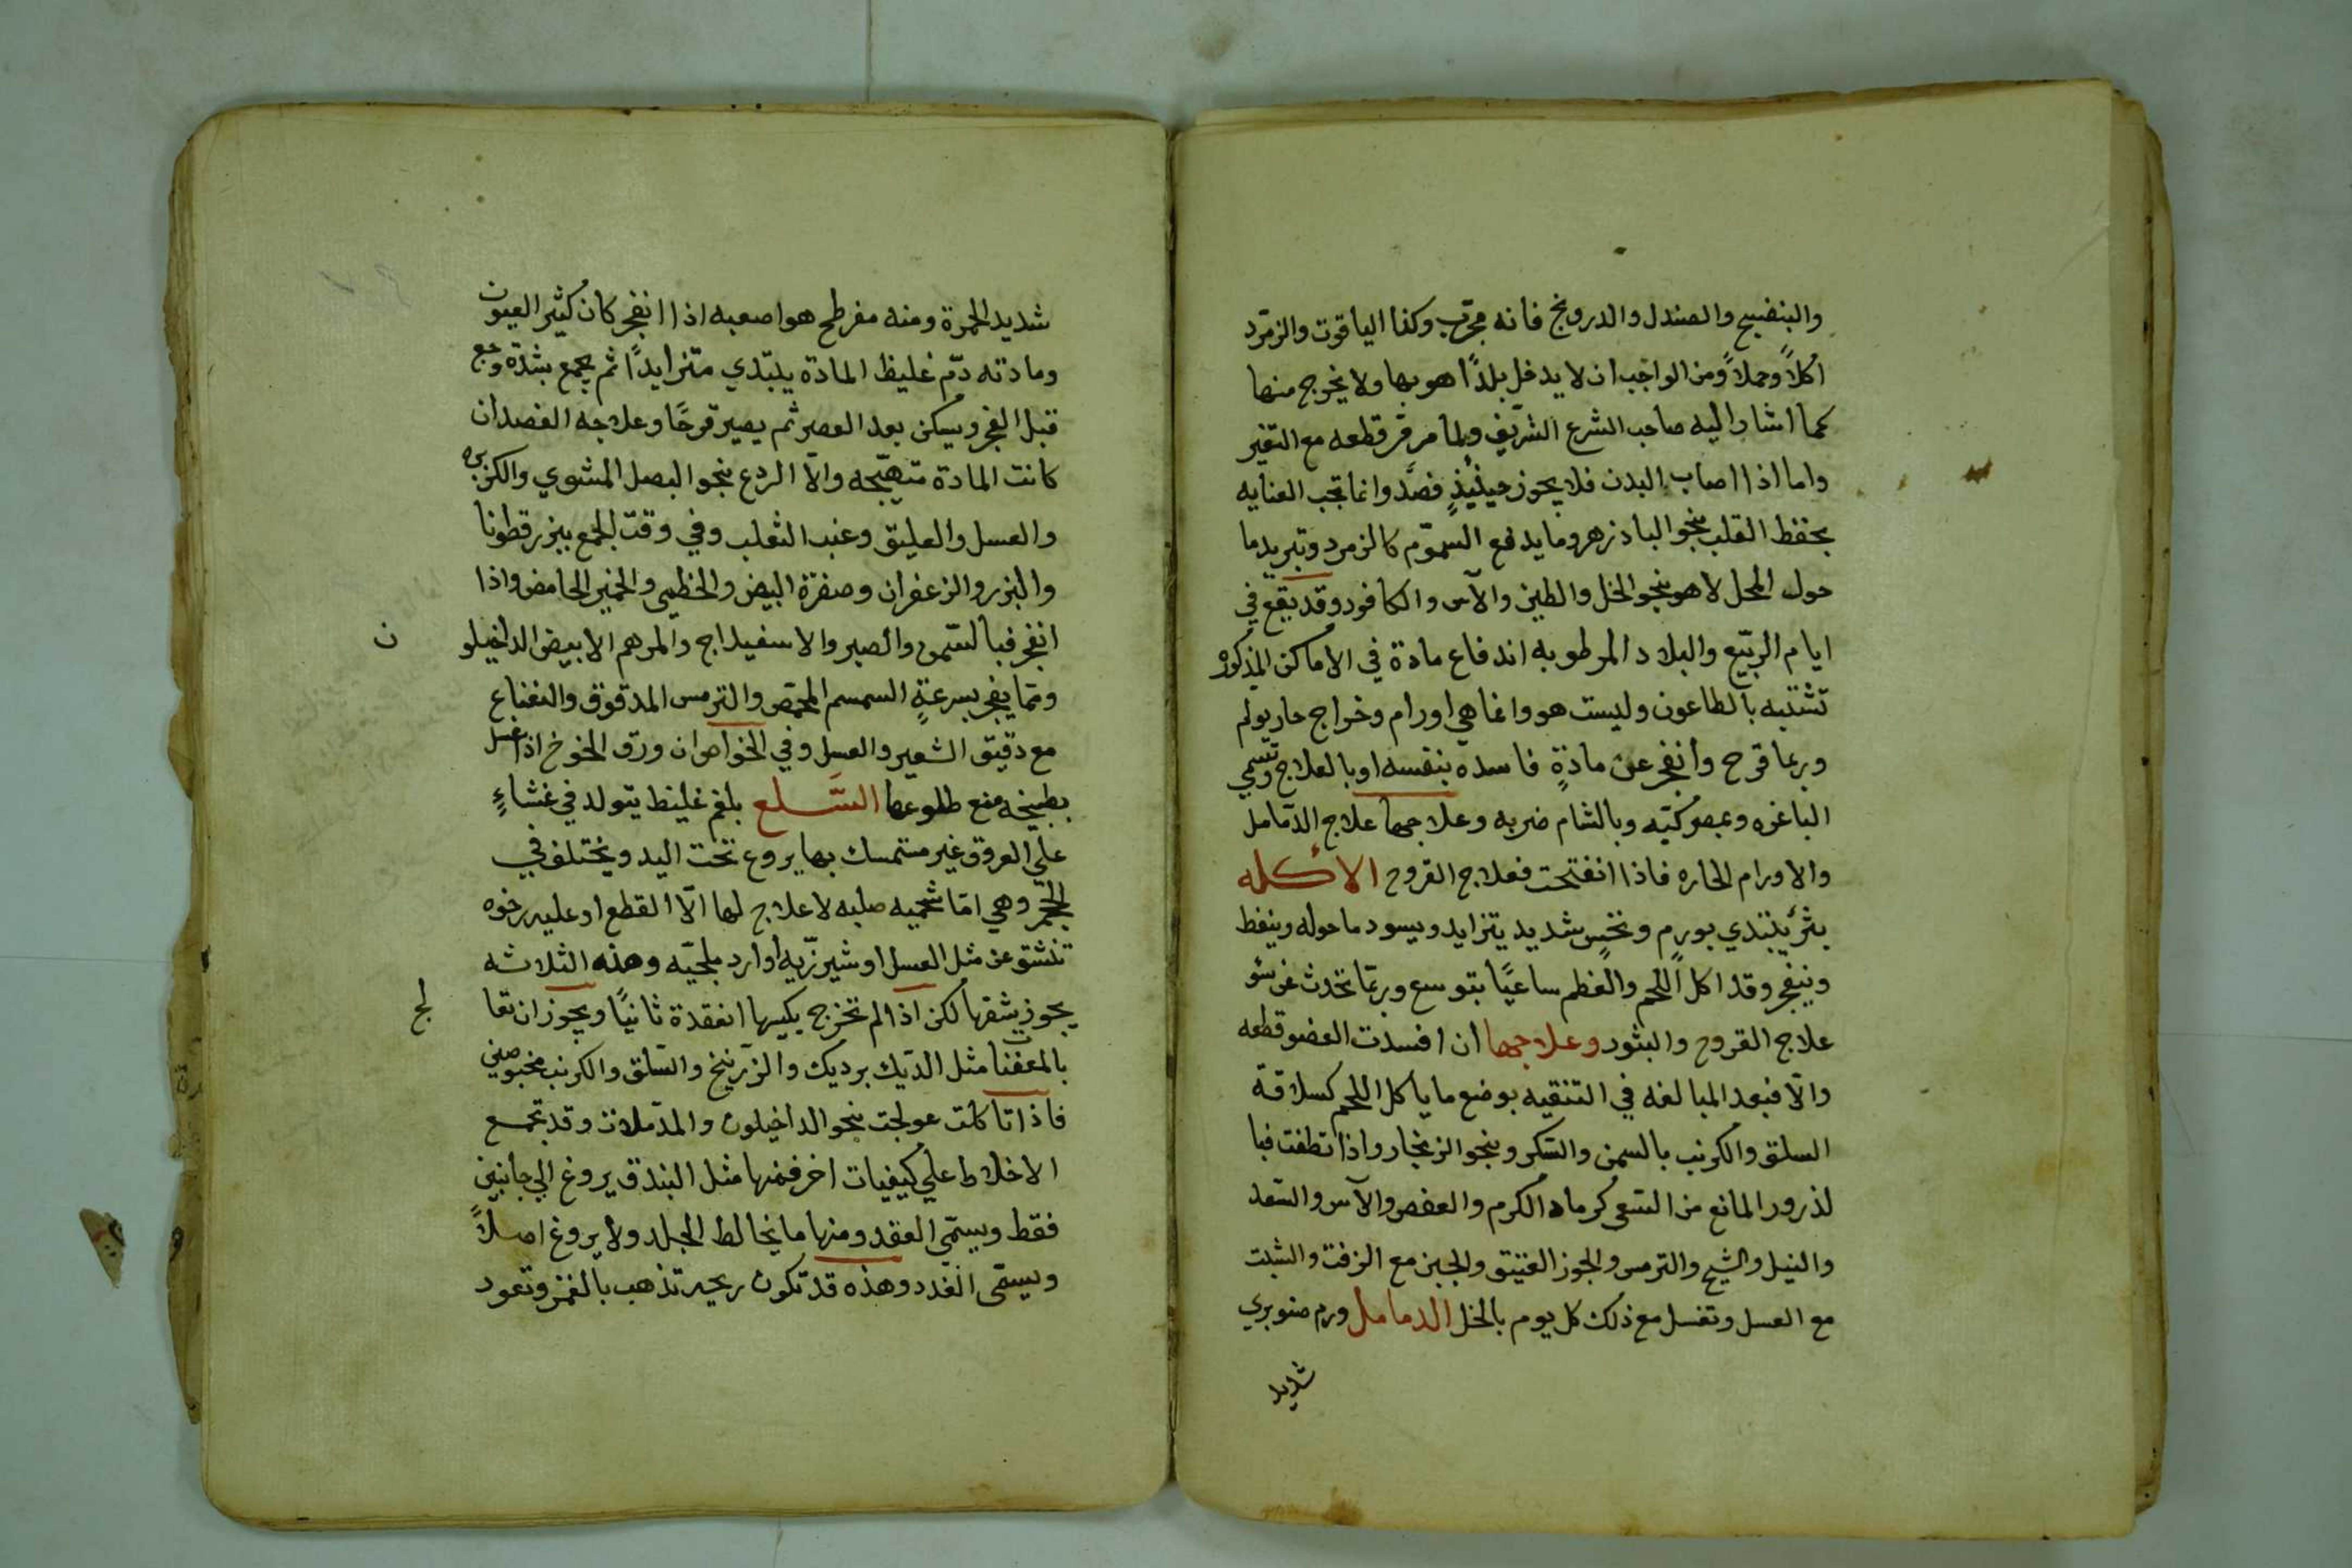 والبنفسج والصندل والدرونج فانه مجرّب وكذا الياقوت والزمّرد
اكلاً وحملاً ومن الواجب ان لا يدخل بلدًا هو بها ولا يخرج منها
كما اشار اليه صاحب الشرع الشريف ولما مر قر قطعه مع التغير
واما اذا اصاب البدن فلا يجوز حينئيذٍ فصَد وانما تجب العنايه
بحفظ القلب بنجو الباذزهر وما يدفع السموّم كالزمرد وتبريد ما
حول المحل لا هو بنجو الخل والطين والآس والكافور وقد يقع في
ايام الربّيع والبلاد المرطوبه اندفاع مادة في الاماكن المذكوره
تشتبه بالطاعون وليست هو وانما هي اورام وخراج حار يولم
وربما قرح وانفجر عن مادةٍ فاسده بنفسه او بالعلاج وتسمي
الباغره وبمصر كبّه وبالشام ضربه وعلاجها علاج الدّمامل
والاورام الحاره فاذا انفتحت فعلاج القروح الاكله
بثر يبتدي بورم ونخس شديد يتزايد ويسود ما حوله وينفط
وينفجر وقد اكل اللحم والعظم ساعيًا بتوسع وربّما تحدث عن سُو
علاج القروح والبثور وعلاجها ان افسدت العضو قطعه
والّا فبعد المبالغه في التنقيه بوضع ما ياكل اللحم كسلاقة
السلق والكرنب بالسمن والسّكر وبنجو الزنجار واذا نظفت فبا
لذرور المانع من السّعي كرماد الكرم والعفص والآس والسّعد
والنيل والشيح والترمس والجوز العتيق والجبن مع الزفت والشبت
مع العسل وتغسل مع ذلك كل يوم بالخل الدمامل ورم صنوبري
شديد
شديد الحمرة ومنه مفرطح هو اصعبه اذا انفجر كان كثير العيون
ومادته دّم غليظ المادة يبتدي متزايدًا ثم يجمع بشدة وجع
قبل الفجر ويسكن بعد العصر ثم يصير قرحًا وعلاجه الفصد ان
كانت المادة متهيّجه والّا الردع بنجو البصل المشوي والكزبره
والعسل والعليق وعنب الثعلب وفي وقت الجمع ببزر قطونا
والبزر والزعفران وصفرة البيض والخطمي والخمير الحامض واذا
انفجر فبالسّمن والصبر والاسفيداج والمرهم الابيض الداخيلو
ن
ومّما يفجر بسرعةٍ السمسم المحمّص والترمس المدقوق والنعناع
مع دقيق الشعير والعسل وفي الخواص ان ورق الخوخ اذا غسل
بطبيخه منع طلوعها السّلع بلغم غليظ يتولد في غشاءٍ
علي العروق غير مستمسك بها يروع تحت اليد ويختلف في
الحجم وهي امّا شحميه صلبه لا علاج لها الّا القطع او عليه رخوه
تنشق عن مثل العسل او شيرزّيه او ارد ملجيّه وهذه الثلاثه
يجوز شقها لكن اذا لم تخرج بكيسها انعقدة ثانيًا ويجوز ان تعا
لج
بالمعفنات مثل الدّيك برديك والزّرنيخ والسّلق والكرنب مخبوصين
فاذا تاكلت عولجت بنجو الداخيلون والمدّملات وقد تجمع
الاخلاط علي كيفيات اخر فمنها مثل البندق يروغ الي جانبين
فقط ويسمّي العقد ومنها ما يخالط الجلد ولا يروغ اصلاً
ويسمّى الغدد وهذه قد تكون ريحيه تذهب بالغمز وتعود